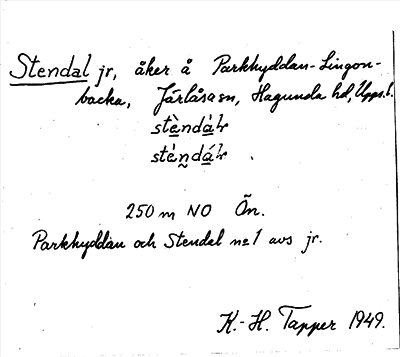 Stendal jr, åker å Parkhyddan-Lingon-
backa, Järlåsa sn, Hagunda hd, Upps.l.
250 m NO Ön.
Parkhyddan och Stendal no 1 avs jr.
K.-H. Tapper 1949.